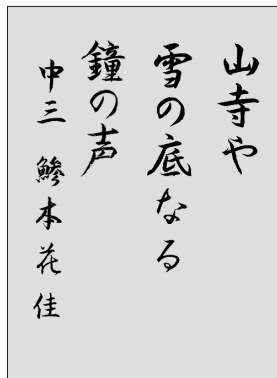 山寺や
雪の底なる
鐘の声
中三 鯵本花佳